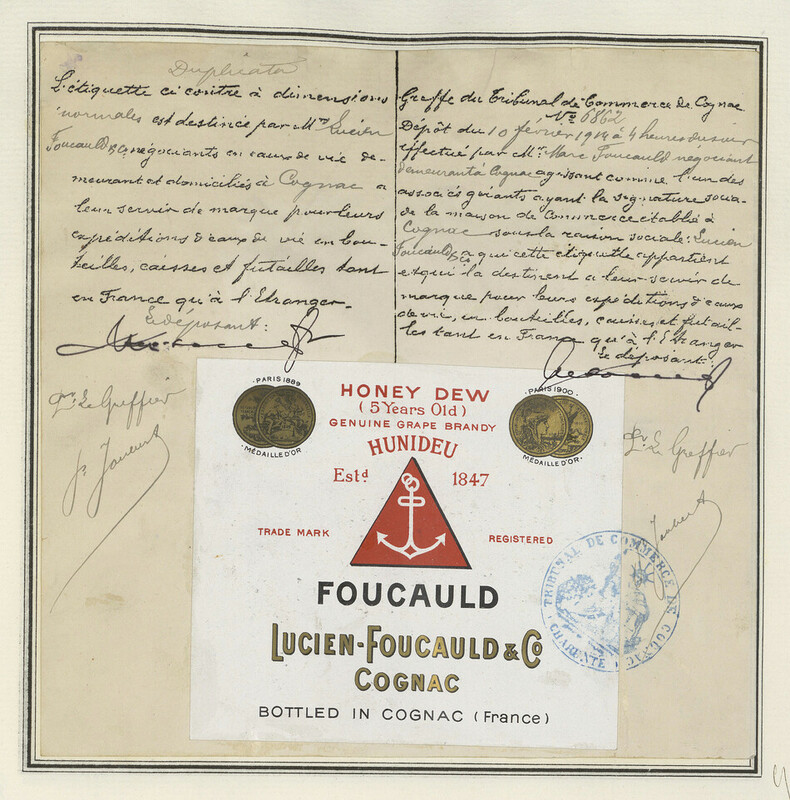 Duplicata
L'étiquette ci contre à dimensions
normales est destinée par Mrs Lucien
Foucauld & Co négociants en eaux de vie de-
meurant et domiciliés à Cognac a
leur servir de marque pour leurs
expéditions d'eaux de vie en bou-
teilles, caisses et futailles tant
en France qu'à l'Etranger.
Le déposant:
Pr. Le Greffier
J. Joubert
Greffe du Tribunal de Commerce de Cognac
No 6862
Dépôt du 10 février 1914 à 4 heures du soir
effectué par Mr. Marc Foucauld négociant
demeurant à Cognac agissant comme l'un des
associés gérants ayant la signature socia-
le de la maison de Commerce établie à
Cognac sous la raison sociale: Lucien
Foucauld & Co a qui cette étiquette appartient
et qui la destinent a leur servir de
marque pour leurs expéditions d'eaux
de vie, en bouteilles, caisses et futail-
les tant en France qu'à l'Etranger
Le déposant:
Pr. Le Greffier
Joubert
PARIS 1889
MÉDAILLE D'OR
PARIS 1900
MÉDAILLE D'OR
HONEY DEW
(5 Years Old)
GENUINE GRAPE BRANDY
HUNIDEU
Estd 1847
TRADE MARK REGISTERED
FOUCAULD
LUCIEN-FOUCAULD & Co
COGNAC
BOTTLED IN COGNAC (France)
TRIBUNAL DE COMMERCE DE COGNAC
CHARENTE